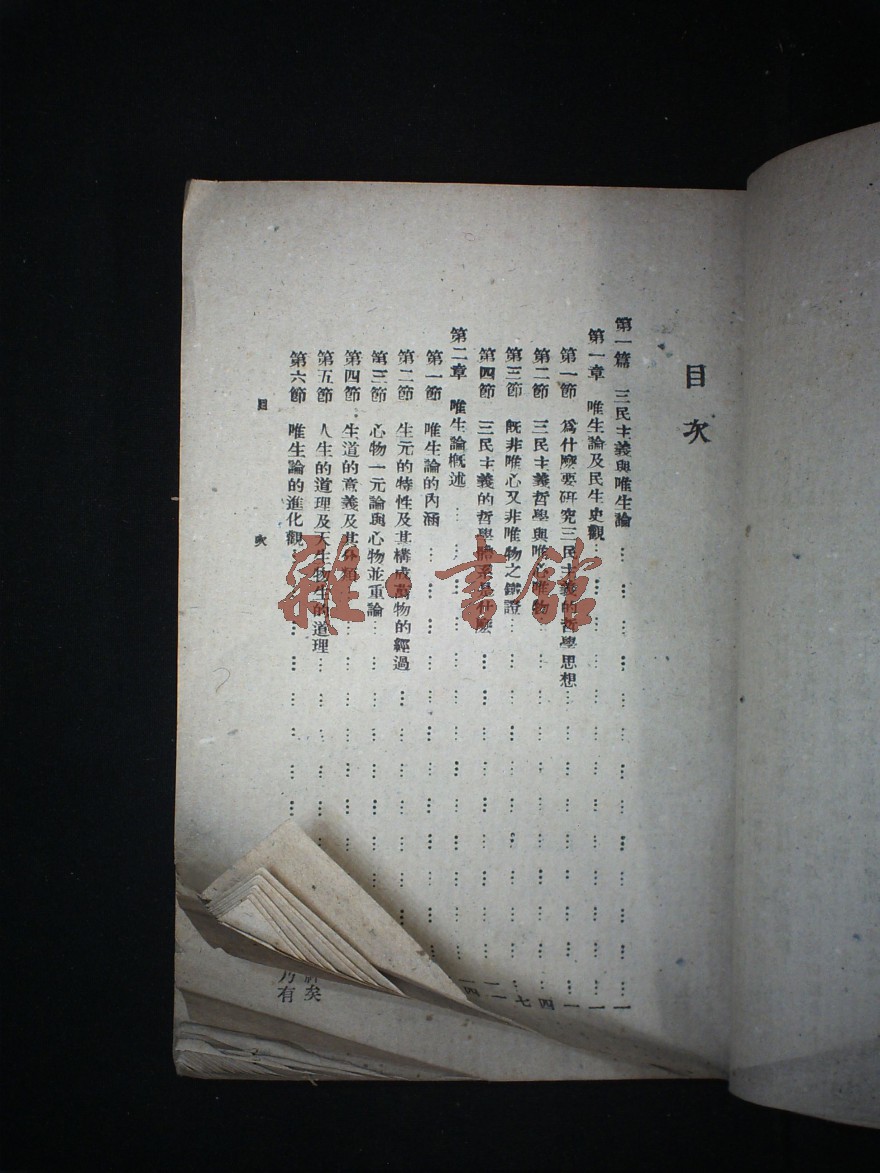 目次
第一篇 三民主義與唯生論……一
第一章 唯生論及民生史觀……一
第一節 爲什麽要研究三民主義的哲學思想……一
第二節 三民主義哲學與唯心唯物……四
第三節 既非唯心又非唯物之鐵證……七
第四節 三民主義的哲學體系是什麽……
第二章 唯生論概述……
第一節 唯生論的內涵……
第二節 生元的特性及其構成萬物的經過……
第三節 心物一元論與心物並重論……
第四節 生道的意義及其……
第五節 人生的道理及天生物生的道理……
第六節 唯生論的進化觀……
目 次
矣
乃有
雜·書館